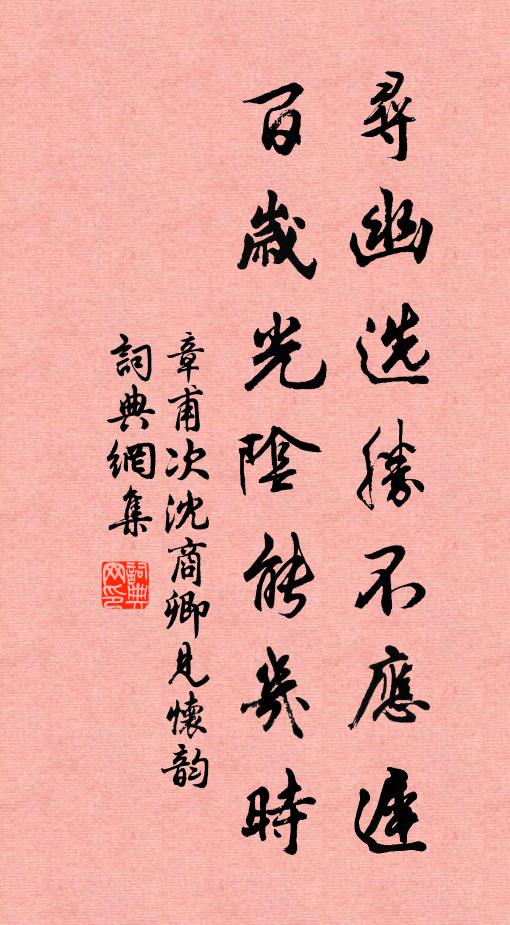 尋幽选勝不應遲
百歲光陰能幾時
章甫次沈商卿見懷韵
詞典網集
詞典网印